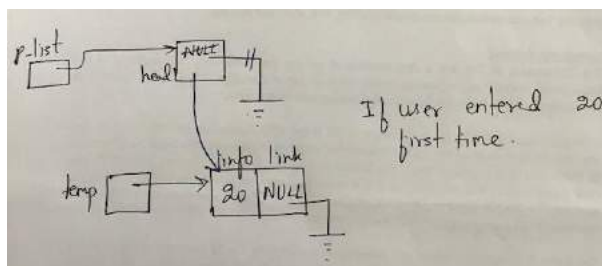 p-list
NULL
head
If user entered 20
first time.
info link
temp
20 NULL